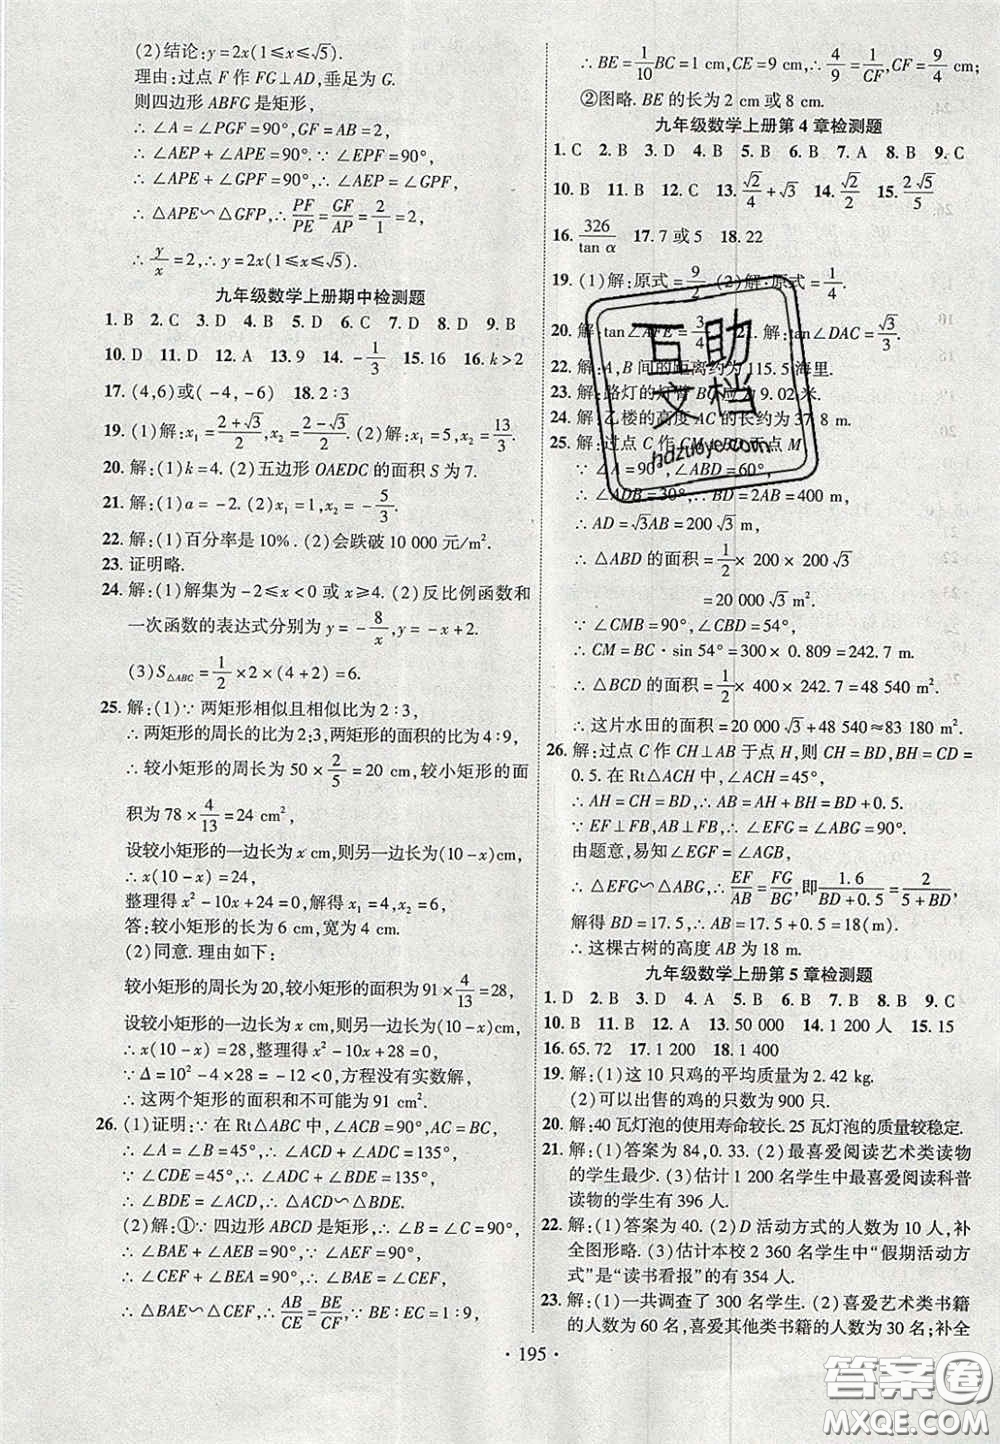 (2)结论:y=2x(1≤x≤√5).
理由:过点 F 作 FG⊥AD,垂足为 G.
则四边形 ABFG 是矩形,
∴∠A=∠PGF=90°,GF=AB=2,
∴∠AEP+∠APE=90°.∵∠FPE=90°,
∴∠APE+∠GPF=90°,∴∠AEP=∠GPF,
∴△APE∽△GFP,∴PF/PE=GF/AP=2/1=2,
∴y/x=2,∴y=2x(1≤x≤√5).
九年级数学上册期中检测题
1. B 2. C 3. D 4. D 5. B 6. B 7. D 8. C 9. B
10. D 11. D 12. A 13. 9 14. -1/3 15. 16 16. k>2
17. (4,6)或(-4,-6) 18. 2∶3
19. (1)解:x₁=(2+√3)/2,x₂=(2-√3)/2. (2)解:x₁=5,x₂=13/3.
20. 解:(1)k=4. (2)五边形 OAEDC 的面积 S 为 7.
21. 解:(1)a=-2. (2)x₁=1,x₂=-5/3.
22. 解:(1)百分率是 10%. (2)会跌破 10 000 元/m².
23. 证明略.
24. 解:(1)解集为-2≤x<0 或 x≥4. (2)反比例函数和
一次函数的表达式分别为 y=-8/x,y=-x+2.
(3)S△ABC=1/2×2×(4+2)=6.
25. 解:(1)∵两矩形相似且相似比为 2∶3,
∴两矩形的周长的比为 2:3,两矩形的面积的比为 4∶9,
∴较小矩形的周长为 50×2/5=20 cm,较小矩形的面
积为 78×4/13=24 cm²,
设较小矩形的一边长为 x cm,则另一边长为(10-x)cm,
∴x(10-x)=24,
整理得 x²-10x+24=0,解得 x₁=4,x₂=6,
答:较小矩形的长为 6 cm,宽为 4 cm.
(2)同意. 理由如下:
较小矩形的周长为 20,较小矩形的面积为 91×4/13=28,
设较小矩形的一边长为 x cm,则另一边长为(10-x)cm,
∴x(10-x)=28,整理得 x²-10x+28=0,
∵Δ=10²-4×28=-12<0,此方程无实数解,
∴这两个矩形的面积和不可能为 91 cm².
26. (1)证明:在 Rt△ABC 中,∠ACB=90°,AC=BC,
∴∠A=∠B=45°,
∵∠CDE=45°,∴∠A=∠CDE=45°,
∴∠BDE=∠ACD,∴△ACD∽△BDE.
(2)解:①∵四边形 ABCD 是矩形,∴∠B=∠C=90°,
∴∠BAE+∠AEB=90°.∵EF⊥AE,
∴∠CEF+∠BEA=90°,∴∠BAE=∠CEF,
∴△BAE∽△CEF,∴AB/CE=BE/CF,∵BE∶EC=1∶9,
∴BE=1/10BC=1 cm,CE=9 cm,∴4/9=1/CF,CF=9/4 cm;
②图略. BE 的长为 2 cm 或 8 cm.
九年级数学上册第 4 章检测题
1. C 2. B 3. D 4. B 5. B 6. B 7. A 8. B 9. C
10. B 11. B 12. D 13. √2/4+√3 14. √2/2 15. 2√5/5
16. 326/tan α 17. 7 或 5 18. 22
19. (1)解:原式=9/2. (2)解:原式=
20. 解:tan∠AFE=3/4. 21. 解:tan∠DAC=√3/3.
22. 解:A,B 间的距离约为 115.5 海里.
23. 解:路灯的灯臂 BC 应为 9.02 米.
24. 解:乙楼的高度 AC 的长约为 37.8 m.
25. 解:过点 C 作 CM⊥BD 于点 M
∵∠A=90°,∠ABD=60°,
∴∠ADB=30°,∴BD=2AB=400 m,
∴AD=√3AB=200√3 m,
∴△ABD 的面积=1/2×200×200√3
=20 000√3 m².
∵∠CMB=90°,∠CBD=54°,
∴CM=BC·sin 54°=300×0.809=242.7 m.
∴△BCD 的面积=1/2×400×242.7=48 540 m².
∴这片水田的面积=20 000√3+48 540≈83 180 m².
26. 解:过点 C 作 CH⊥AB 于点 H,则 CH=BD,BH=CD=
0.5. 在 Rt△ACH 中,∠ACH=45°,
∴AH=CH=BD,∴AB=AH+BH=BD+0.5.
∵EF⊥FB,AB⊥FB,∴∠EFG=∠ABG=90°.
由题意,易知∠EGF=∠AGB,
∴△EFG∽△ABG,∴EF/AB=FG/BG,即1.6/(BD+0.5)=2/(5+BD),
解得 BD=17.5,∴AB=17.5+0.5=18(m).
∴这棵古树的高度 AB 为 18 m.
九年级数学上册第 5 章检测题
1. D 2. B 3. D 4. B 5. C 6. D 7. B 8. B 9. C
10. B 11. B 12. A 13. 50 000 14. 1 200 人 15. 15
16. 65.72 17. 1 200 18. 1 400
19. 解:(1)这 10 只鸡的平均质量为 2.42 kg.
(2)可以出售的鸡的只数为 900 只.
20. 解:40 瓦灯泡的使用寿命较长. 25 瓦灯泡的质量较稳定.
21. 解:(1)答案为 84,0.33. (2)最喜爱阅读艺术类读物
的学生最少. (3)估计 1 200 名学生中最喜爱阅读科普
读物的学生有 396 人.
22. 解:(1)答案为 40. (2)D 活动方式的人数为 10 人,补
全图形略. (3)估计本校 2 360 名学生中“假期活动方
式”是“读书看报”的有 354 人.
23. 解:(1)一共调查了 300 名学生. (2)喜爱艺术类书籍
的人数为 60 名,喜爱其他类书籍的人数为 30 名;补全
·195·
互助文档
hdzuoye.com
答案圈
MXQE.COM